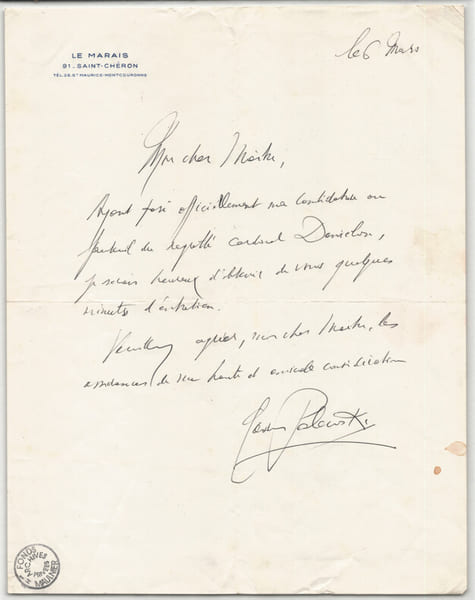 LE MARAIS
91. SAINT-CHÉRON
TÉL. 28. ST MAURICE-MONTCOURONNE
le 6 Mars
Mon cher Maître,
Ayant posé officiellement ma candidature au
fauteuil du regretté cardinal Danielou,
je serais heureux d'obtenir de vous quelques
minutes d'entretien.
Veuillez agréer, mon cher Maître, les
assurances de ma haute et amicale considération
Gaston Palewski
FONDS
ARCHIVES
PRIVÉES
MAULNIER